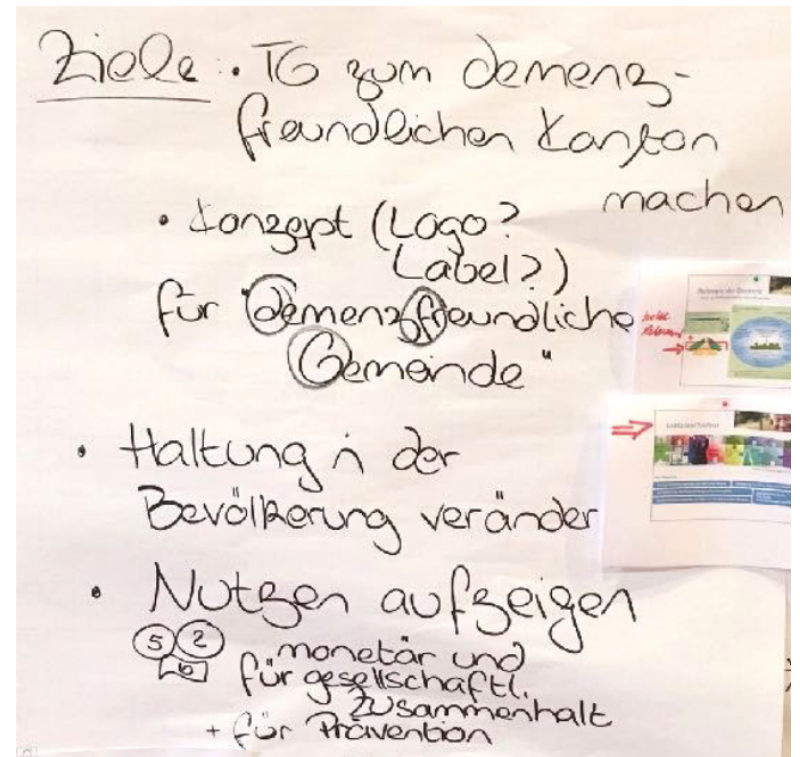 Ziele: • TG zum demenz-
freundlichen Kanton
machen
• Konzept (Logo?
Label?)
für "demenzfreundliche
Gemeinde"
• Haltung in der
Bevölkerung veränder
• Nutzen aufzeigen
5 2 monetär und
10 für gesellschaftl.
Zusammenhalt
+ für Prävention